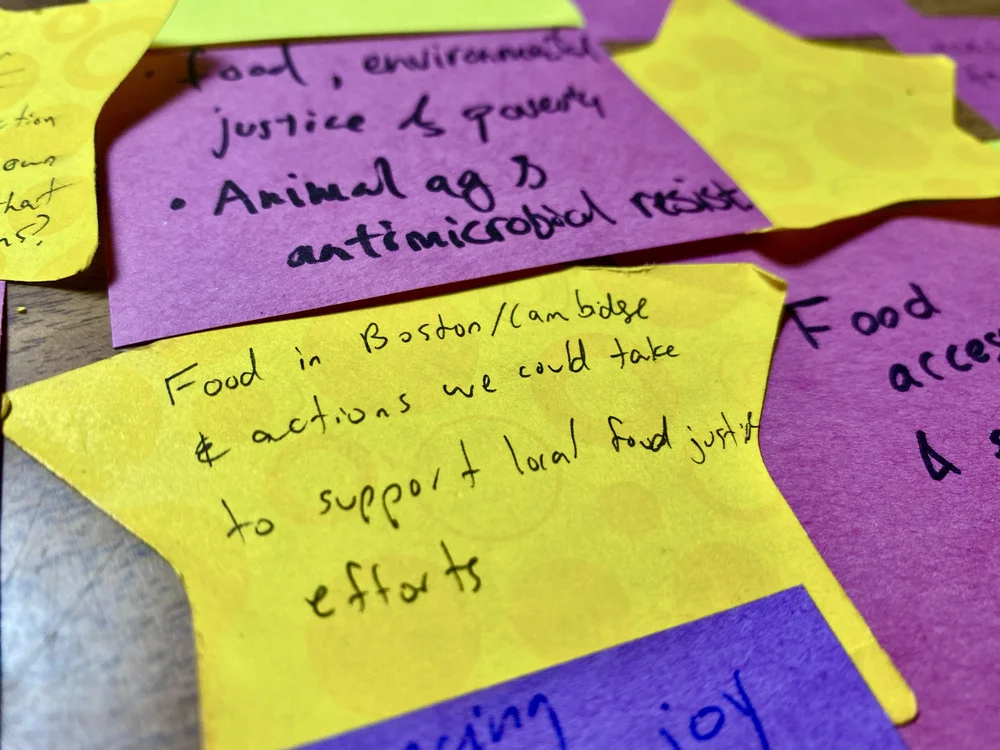 tion
own
that
ns?
• Food, environmental
justice & poverty
• Animal ag &
antimicrobial resist
Food in Boston/Cambidge
& actions we could take
to support local food justice
efforts
Food
acces
&
cing joy